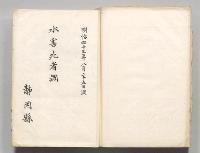 明治四十三年八月十五日調
水害死者調
静岡縣